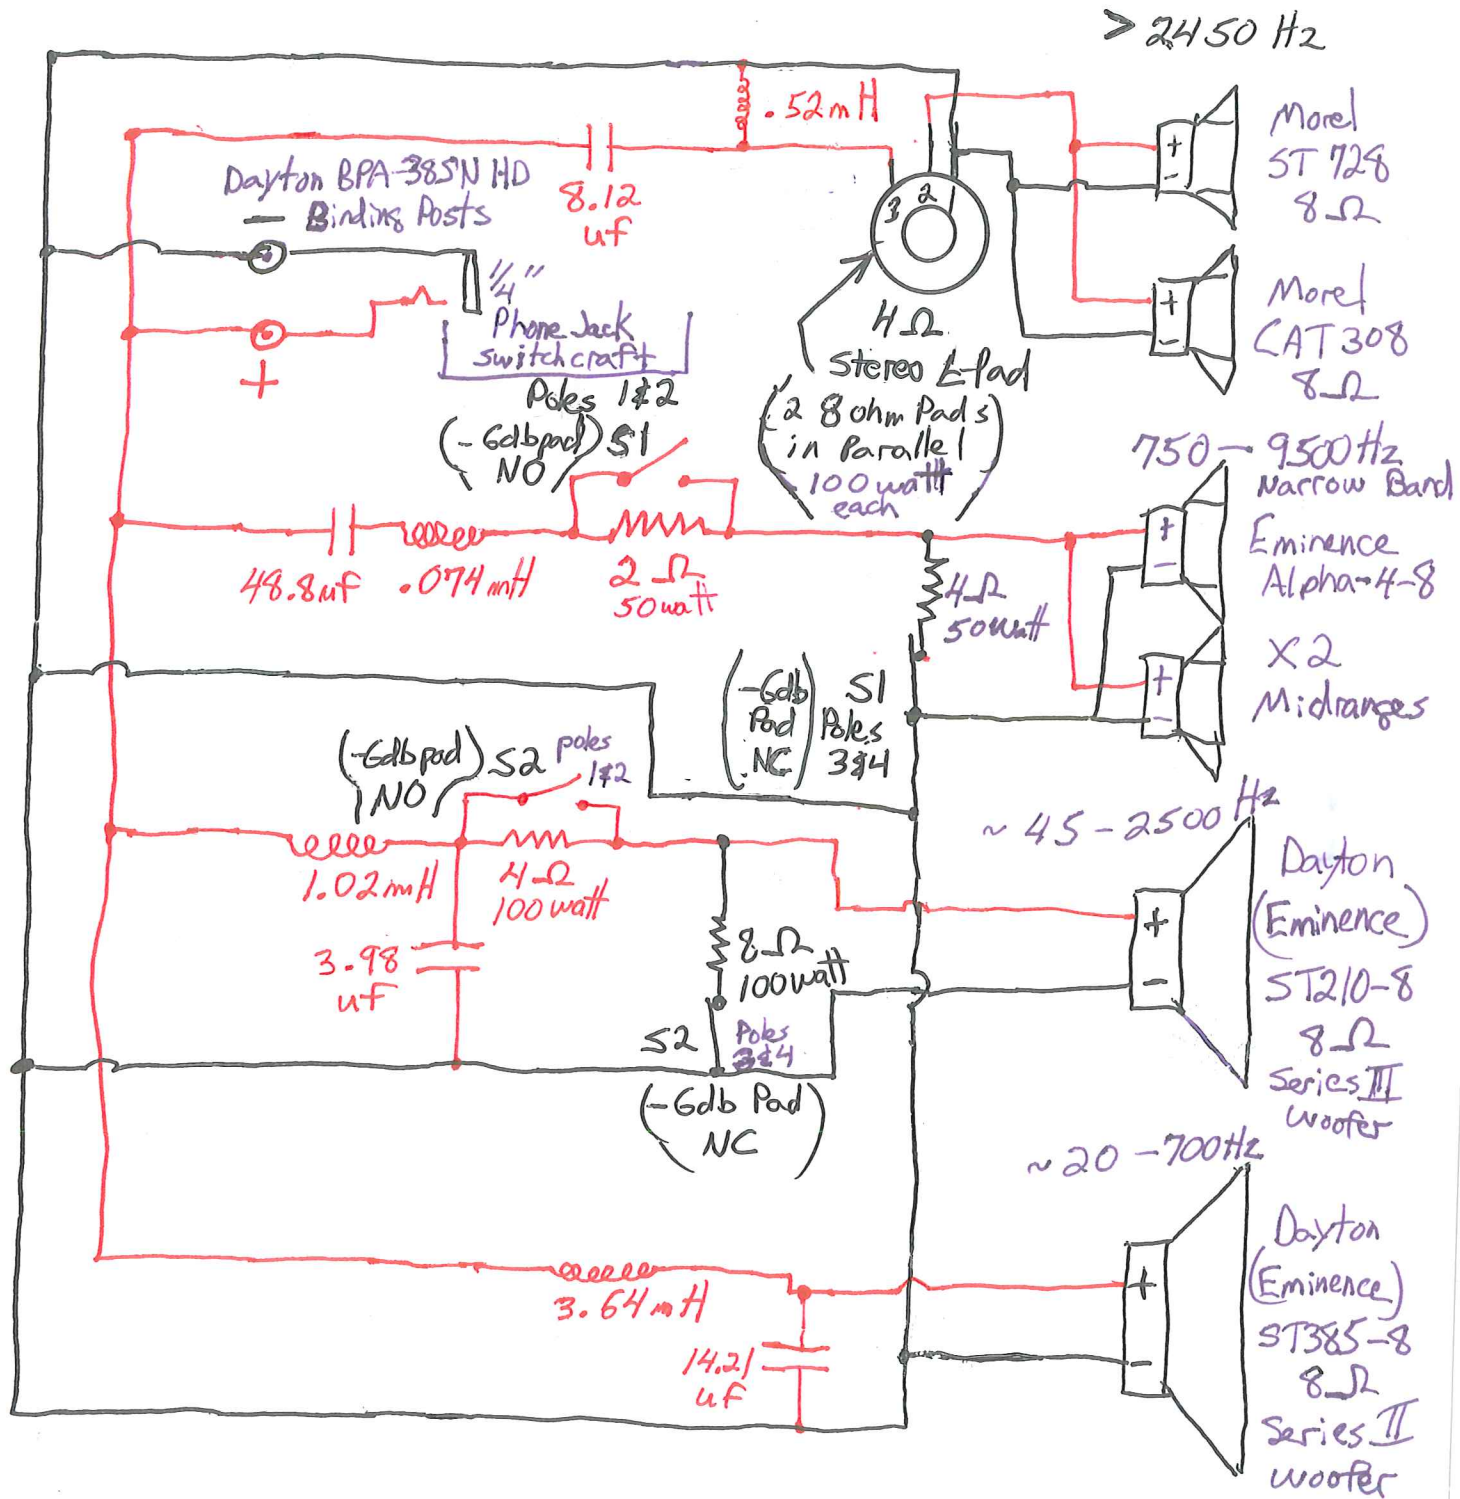 > 2450 Hz
.52mH
Morel
ST 728
8Ω
Dayton BPA-385N HD
— Binding Posts
8.12
uf
3 2 1
+
-
1/4"
Phone Jack
switchcraft
+
4Ω
Stereo L-Pad
(2 8 ohm Pads
in Parallel
100 watt
each)
+
-
Morel
CAT 308
8Ω
Poles 1&2
(-6dbpad) S1
NO
750 - 9500Hz
Narrow Band
Eminence
Alpha-4-8
X2
Midranges
+
-
+
-
48.8uf
.074mH
2Ω
50watt
4Ω
50watt
(-6db
Pad
NC)
S1
Poles
3&4
(-6dbpad) S2 poles
NO 1&2
~ 45 - 2500 Hz
1.02mH
4Ω
100watt
3.98
uf
8Ω
100watt
S2 Poles
3&4
(-6db Pad)
NC
+
-
Dayton
(Eminence)
ST210-8
8Ω
Series III
woofer
~ 20 - 700Hz
3.64mH
14.21
uf
+
-
Dayton
(Eminence)
ST385-8
8Ω
Series II
woofer